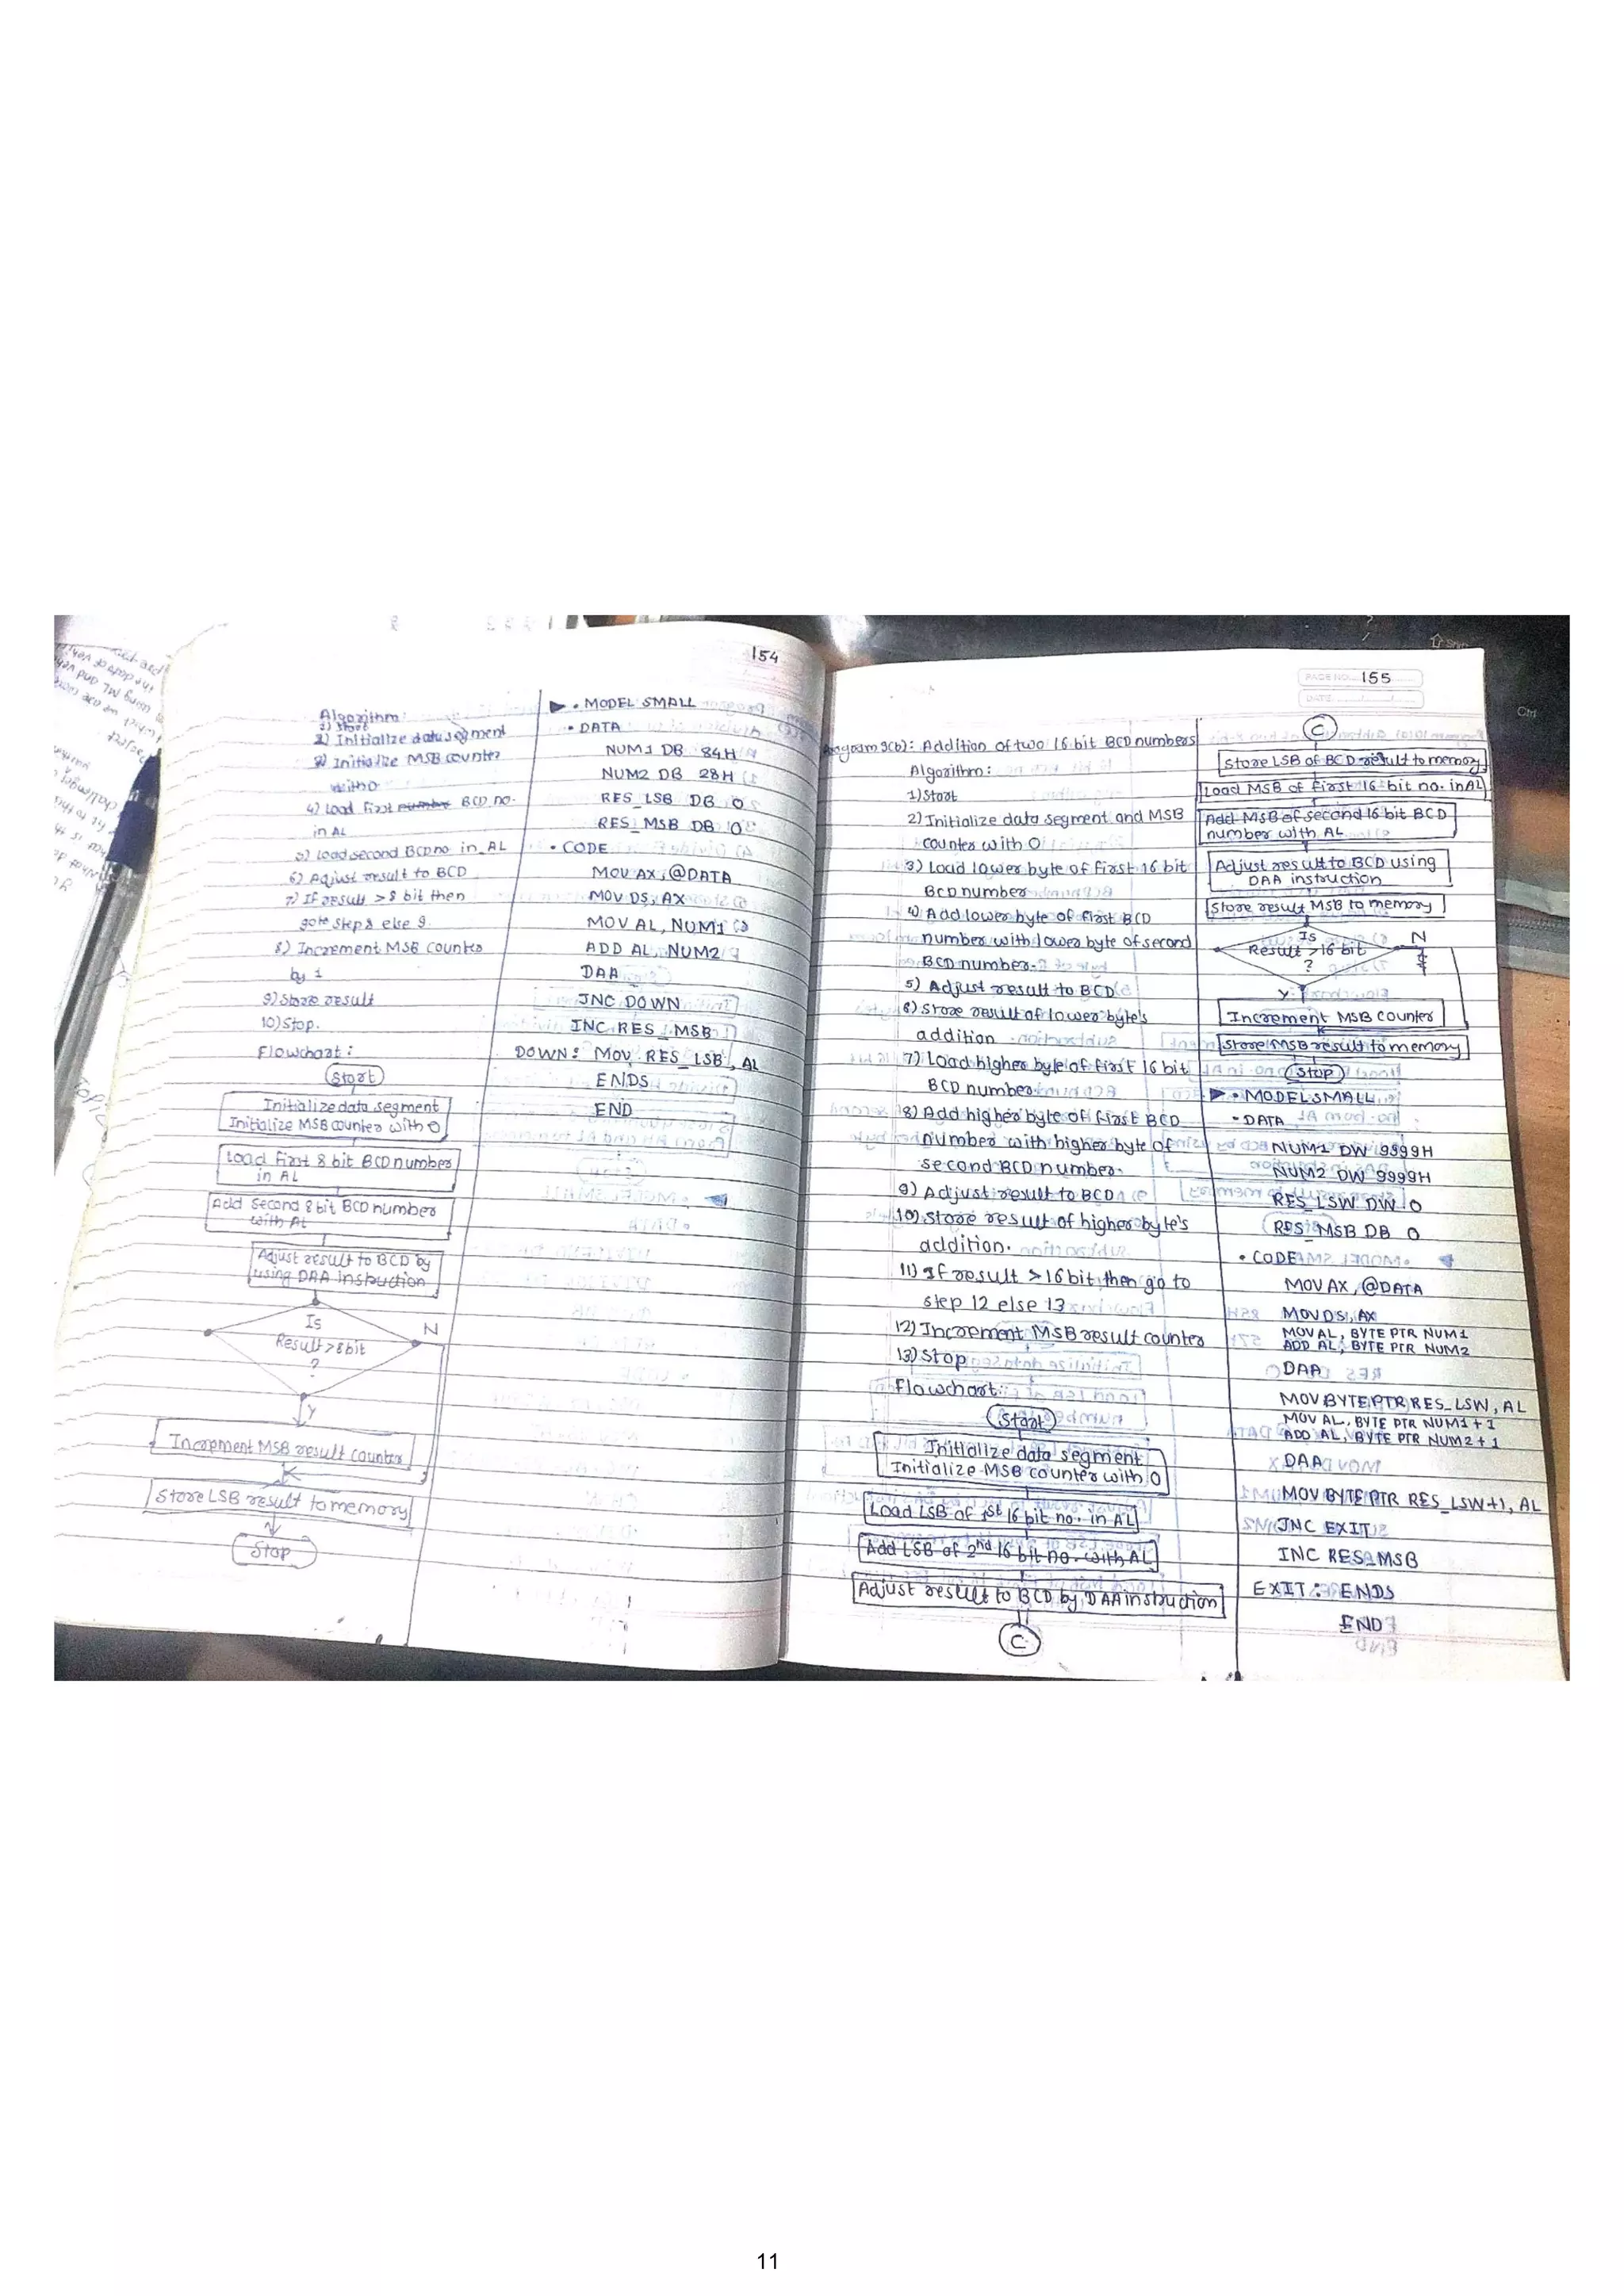 154
Algorithm:
1) Start
2) Initialize data segment
3) Initialize MSB counter
with 0
4) Load first BCD no.
in AL
5) load second BCD no in AL
6) Adjust result to BCD
7) If result > 8 bit then
goto step 8 else 9.
8) Increment MSB counter
by 1
9) Store result
10) Stop.
Flowchart:
Start
Initialize data segment
Initialize MSB counter with 0
Load first 8 bit BCD number
in AL
Add second 8 bit BCD number
with AL
Adjust result to BCD by
using DAA instruction
Is
Result > 8 bit
?
N
Y
Increment MSB result counter
Store LSB result to memory
Stop
.MODEL SMALL
.DATA
NUM1 DB 84H
NUM2 DB 28H
RES_LSB DB 0
RES_MSB DB 0
.CODE
MOV AX,@DATA
MOV DS,AX
MOV AL, NUM1
ADD AL, NUM2
DAA
JNC DOWN
INC RES_MSB
DOWN: MOV RES_LSB, AL
ENDS
END
PAGE NO. 155
DATE
Program 9(b): Addition of two 16 bit BCD numbers
Algorithm:
1) Start
2) Initialize data segment and MSB
counter with 0
3) Load lower byte of first 16 bit
BCD number
4) Add lower byte of first BCD
number with lower byte of second
BCD number.
5) Adjust result to BCD
6) Store result of lower byte's
addition
7) Load higher byte of first 16 bit
BCD number
8) Add higher byte of first BCD
number with higher byte of
second BCD number.
9) Adjust result to BCD
10) Store result of higher byte's
addition.
11) If result > 16 bit then go to
step 12 else 13
12) Increment MSB result counter
13) Stop
Flowchart:
Start
Initialize data segment
Initialize MSB counter with 0
Load LSB of 1st 16 bit no. in AL
Add LSB of 2nd 16 bit no. with AL
Adjust result to BCD by DAA instruction
C
C
Store LSB of BCD result to memory
Load MSB of first 16 bit no. in AL
Add MSB of second 16 bit BCD
number with AL
Adjust result to BCD using
DAA instruction
Store result MSB to memory
Is
Result > 16 bit
?
N
Y
Increment MSB counter
Store MSB result to memory
Stop
.MODEL SMALL
.DATA
NUM1 DW 9999H
NUM2 DW 9999H
RES_LSW DW 0
RES_MSB DB 0
.CODE
MOV AX, @DATA
MOV DS, AX
MOV AL, BYTE PTR NUM1
ADD AL, BYTE PTR NUM2
DAA
MOV BYTE PTR RES_LSW, AL
MOV AL, BYTE PTR NUM1 + 1
ADD AL, BYTE PTR NUM2 + 1
DAA
MOV BYTE PTR RES_LSW+1, AL
JNC EXIT
INC RES_MSB
EXIT: ENDS
END
11